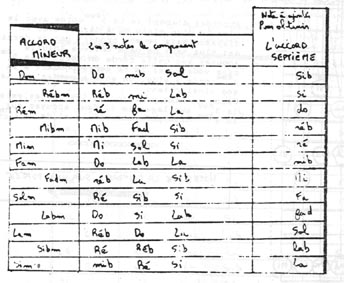 Note à ajouter
Pour obtenir
ACCORD MINEUR Les 3 notes le composent L'ACCORD SEPTIÈME
Dom Do mib Sol Sib
Rébm Réb mi Lab si
Rém ré fa La do
Mibm Mib Fad Sib réb
Mim Mi sol Si ré
Fam Do Lab La mib
Fadm réb La Sib Mi
Solm Ré Sib Si Fa
Labm Do Si Lab fad
Lam Réb Do La Sol
Sibm Ré Réb Sib lab
mib Ré Si La